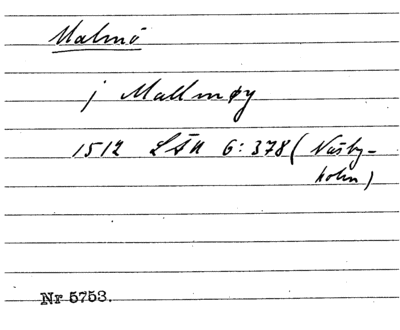 Malmö
j Mallmøy
1512 LÅU 6:378 (Näsby-
holm)
Nr 5753.